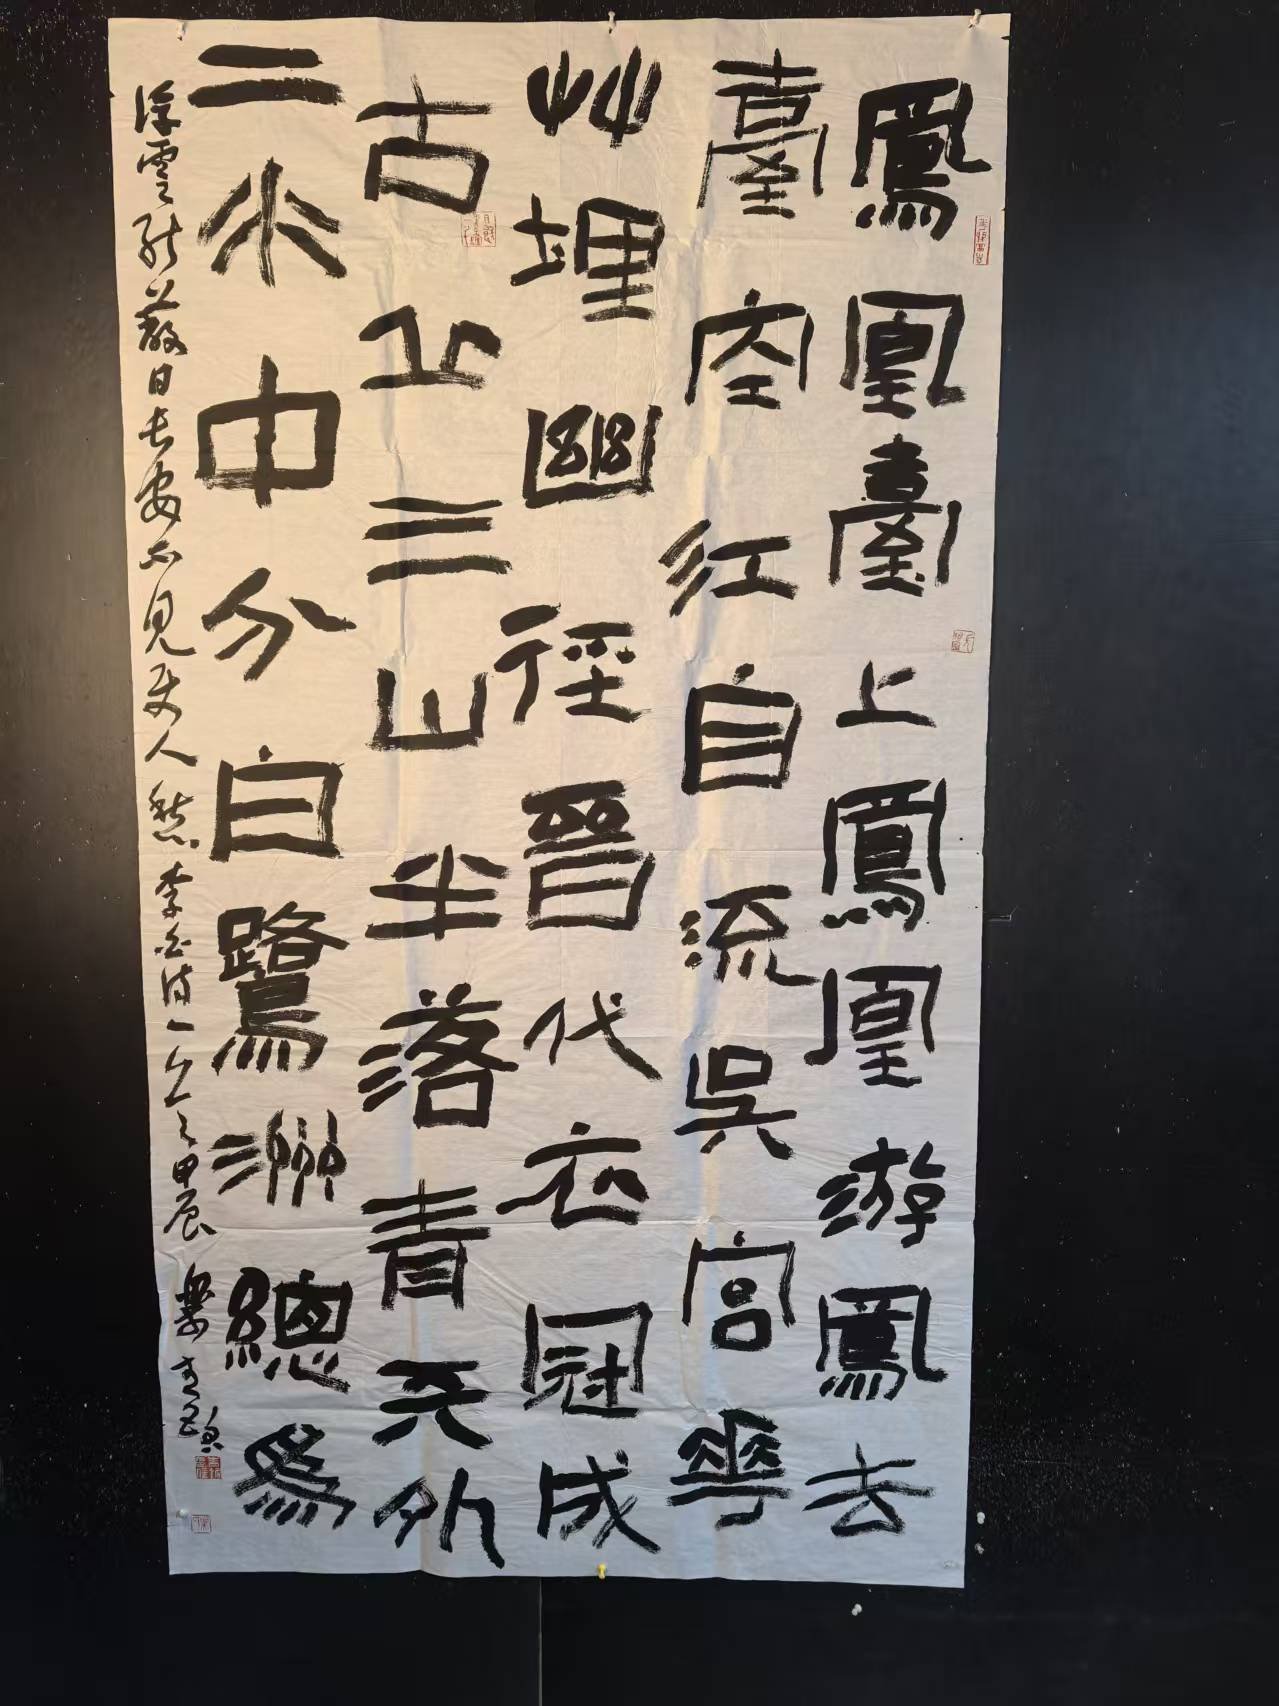 鳳凰臺上鳳凰游鳳去
臺空江自流吳宮華
艸埋幽徑晉代衣冠成
古丘三山半落青天外
二水中分白鷺洲總爲
浮雲能蔽日長安不見使人愁 李白詩一首 甲辰